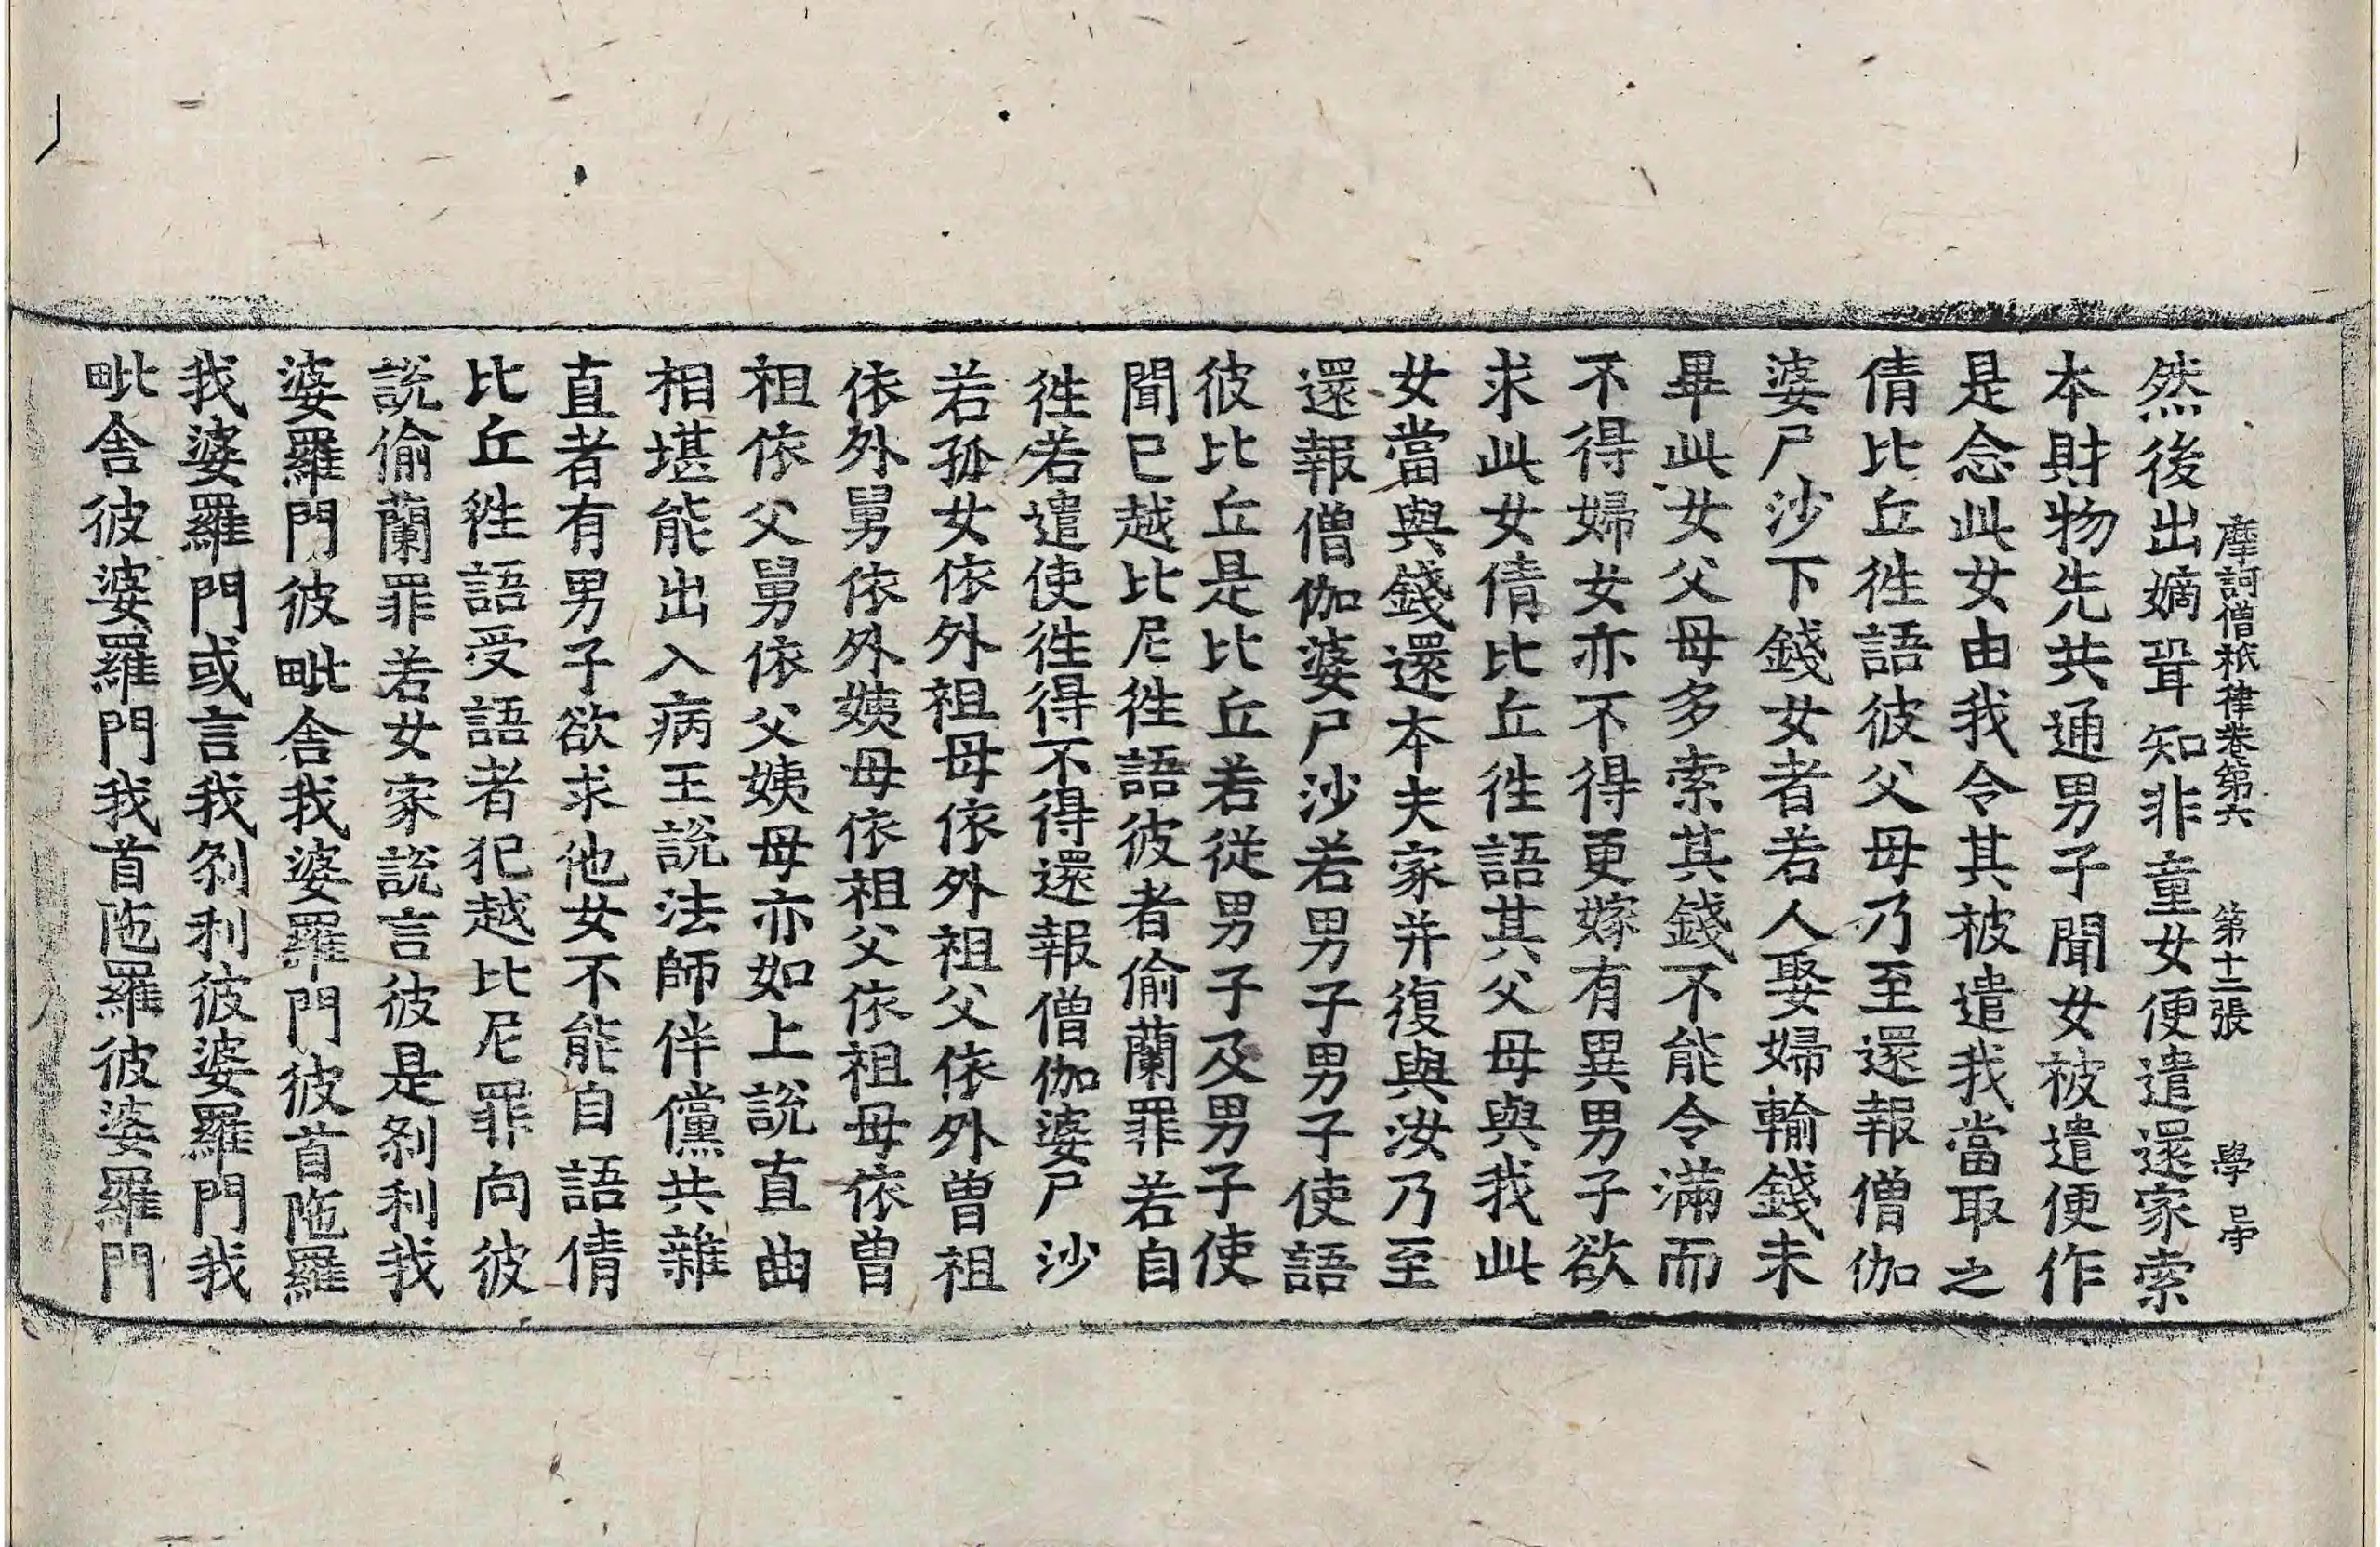 摩訶僧祇律卷第六 第十二張 學
然後出嫡聟知非童女便遣還家索
本財物先共通男子聞女被遣便作
是念此女由我令其被遣我當取之
倩比丘徃語彼父母乃至還報僧伽
婆尸沙下錢女者若人娶婦輸錢未
畢此女父母多索其錢不能令滿而
不得婦女亦不得更嫁有異男子欲
求此女倩比丘徃語其父母與我此
女當與錢還本夫家并復與汝乃至
還報僧伽婆尸沙若男子男子使語
彼比丘是比丘若從男子及男子使
聞已越比尼徃語彼者偷蘭罪若自
徃若遣使徃得不得還報僧伽婆尸沙
若孤女依外祖母依外祖父依外曾祖
依外舅依外姨母依祖父依祖母依曾
祖依父舅依父姨母亦如上說直曲
相堪能出入病王說法師伴儻共雜
直者有男子欲求他女不能自語倩
比丘徃語受語者犯越比尼罪向彼
說偷蘭罪若女家說言彼是刹利我
婆羅門彼毗舍我婆羅門彼首陁羅
我婆羅門或言我刹利彼婆羅門我
毗舍彼婆羅門我首陁羅彼婆羅門